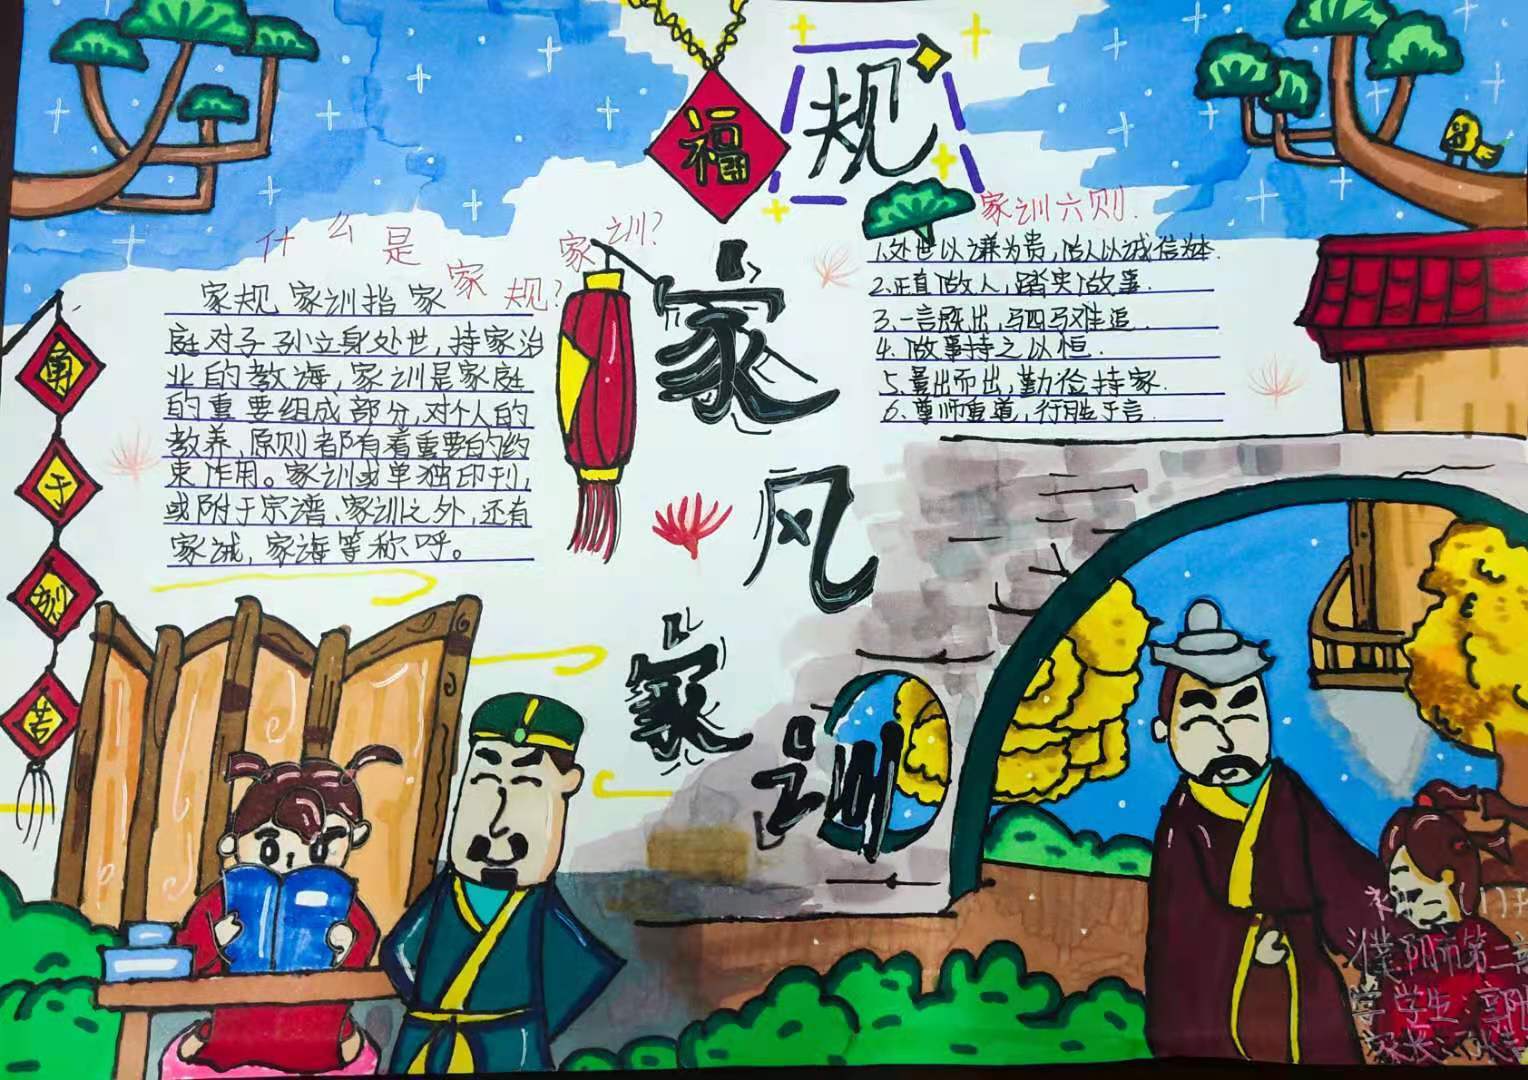 福
规
家
风
家
训
什么是家规?家训?
家规、家训指家
庭对子孙立身处世,持家治
业的教海,家训是家庭
的重要组成部分,对个人的
教养、原则都有着重要的约
束作用。家训或单独印刊,
或附于宗谱、家训之外,还有
家诫,家海等称呼。
家训六则.
1.处世以谦为贵,做人以诚信为本.
2.正直做人,踏实做事.
3.一言既出,驷马难追.
4.做事持之以恒.
5.量出而出,勤俭持家.
6.尊师重道,行胜于言.
于
苦
濮阳市第二
学 学生:郭
家长: